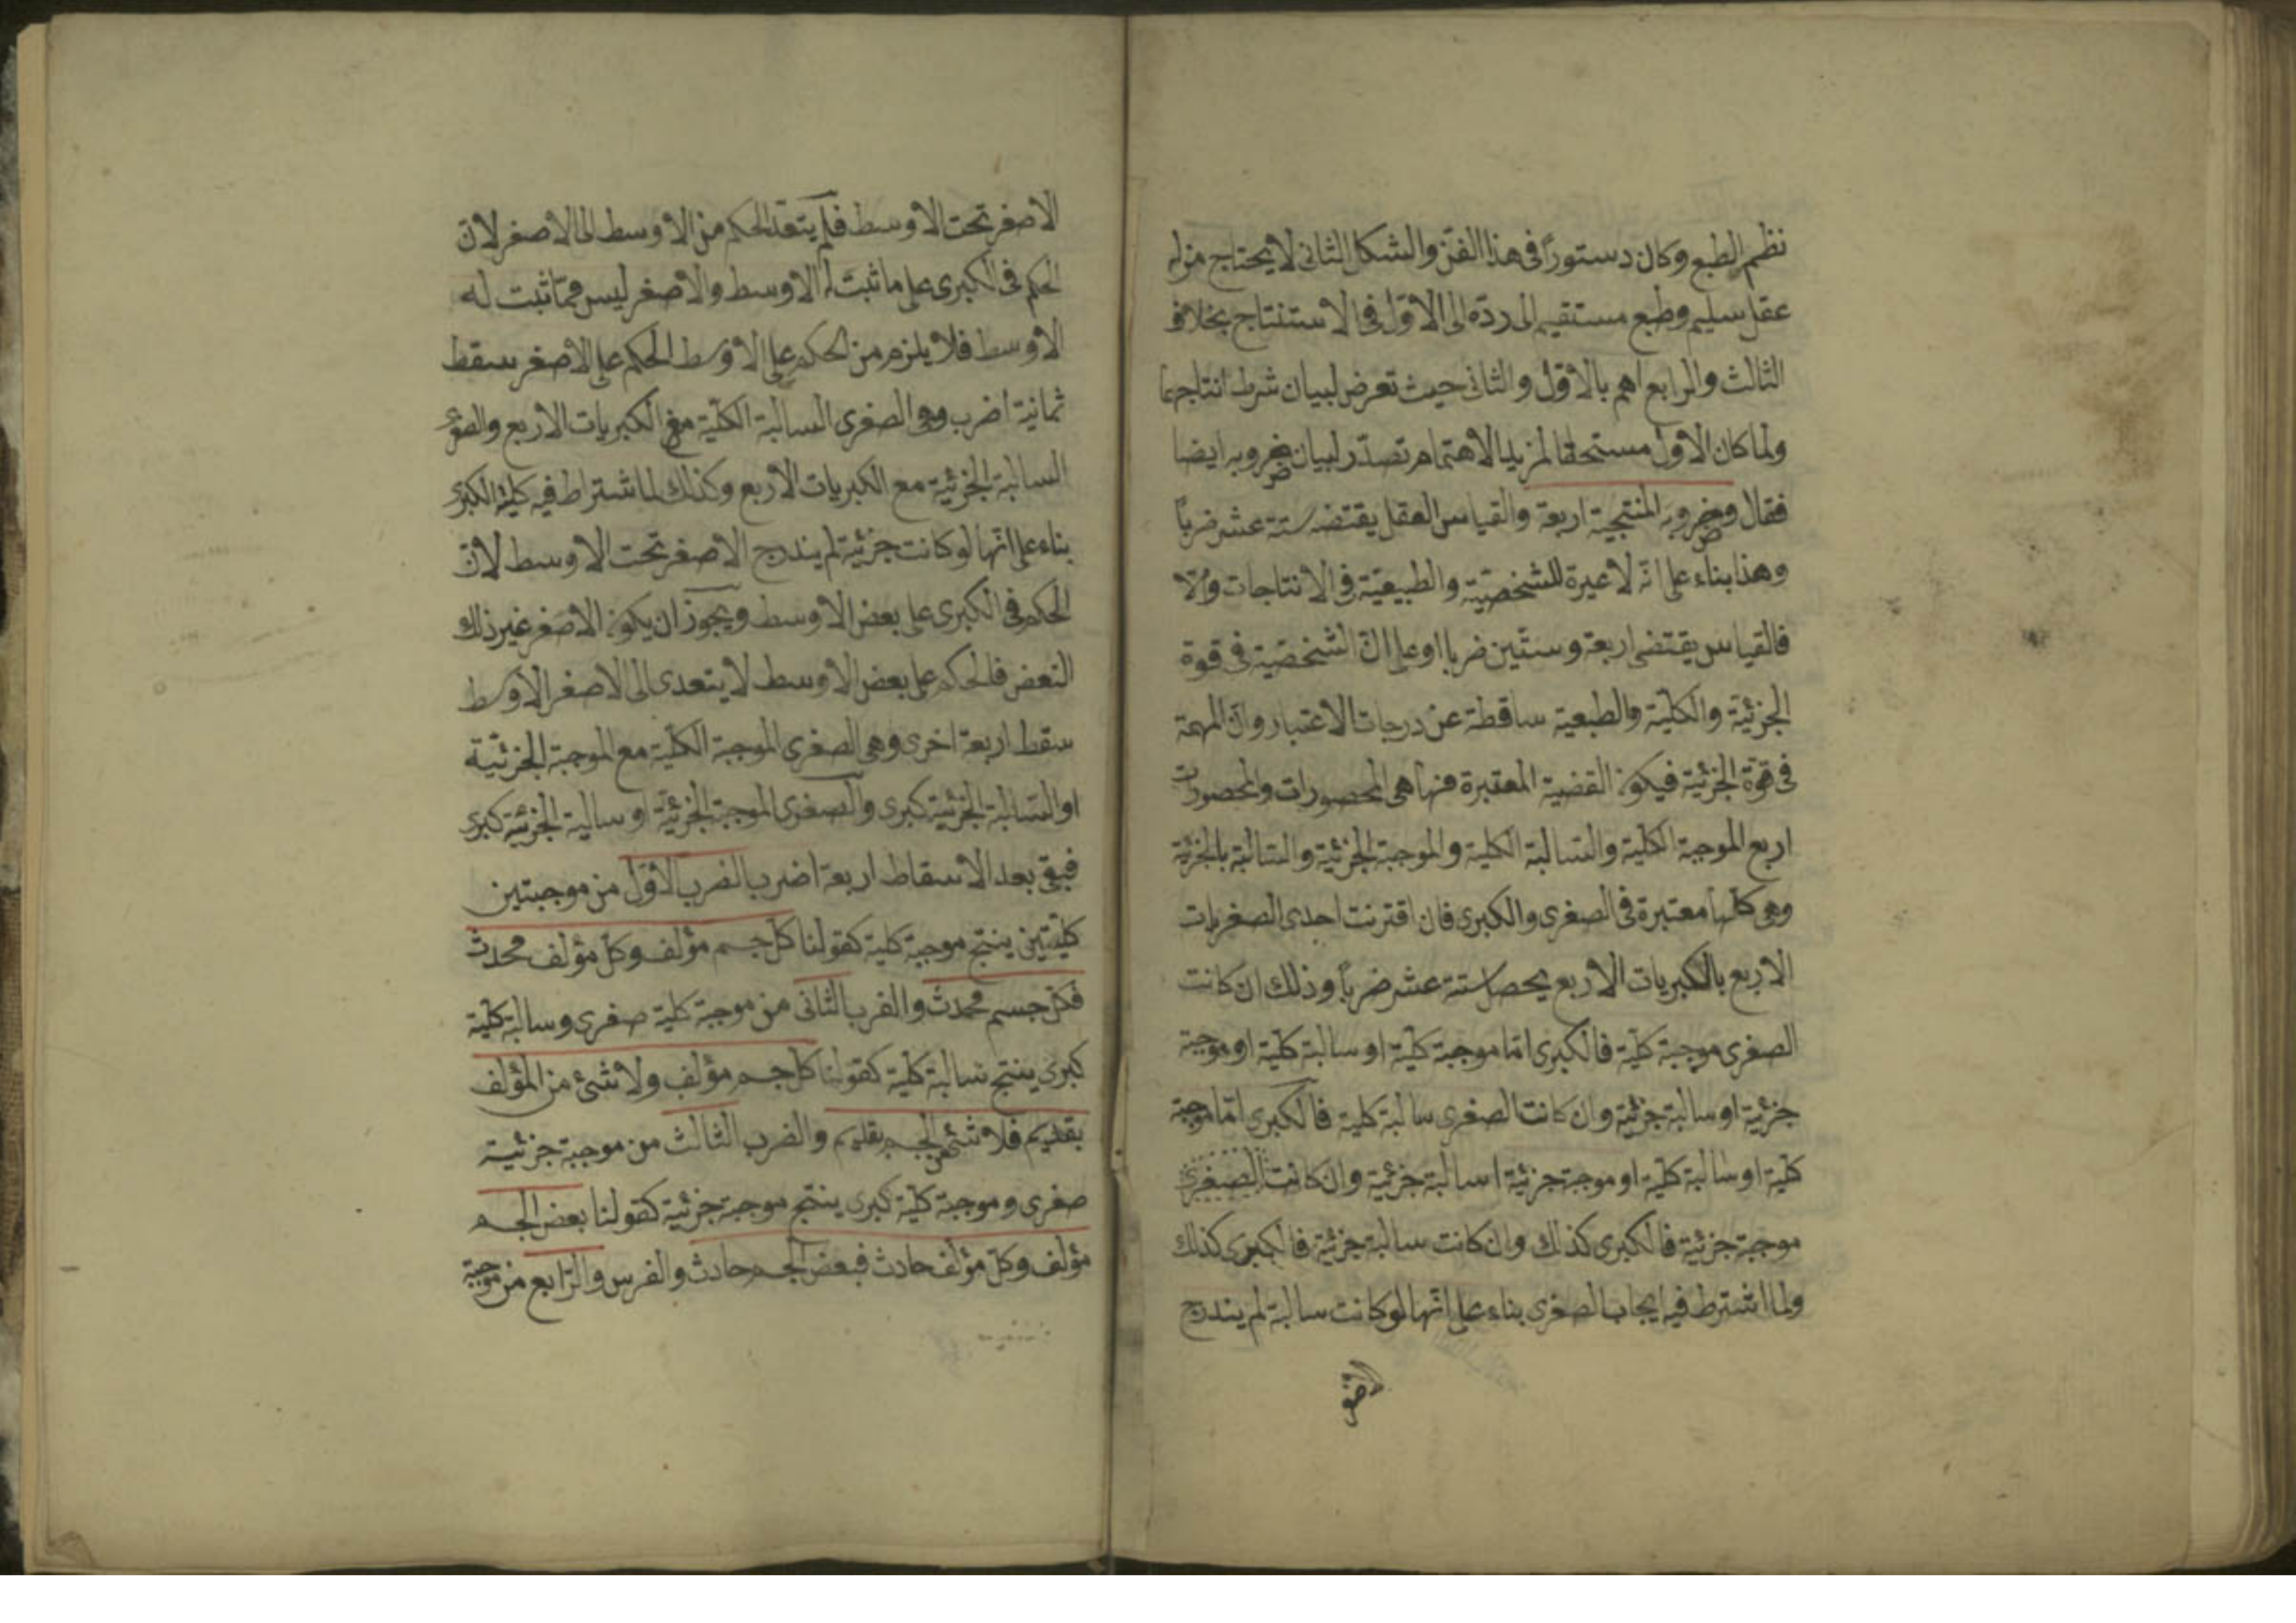 نظم الطبع وكان دستورًا فى هذا الفنّ والشكل الثانى لا يحتاج من له
عقل سليم وطبع مستقيم الى ردّه الى الاوّل فى الاستنتاج بخلاف
الثالث والرابع اهم بالاوّل والثانى حيث تعرض لبيان شرط انتاجهما
ولما كان الاول مستحقا لمزيد الاهتمام تصدّر لبيان ضروبه ايضا
فقال وضروبه المنتجية اربعة والقياس العقل يقتضى ستة عشر ضربًا
وهذا بناء على انّه لا عبرة للشخصيّة والطبيعيّة فى الانتاجات والّا
فالقياس يقتضى اربعة وستّين ضربا او على انّ الشخصيّة فى قوة
الجزئيّة والكليّة والطبعية ساقطة عن درجات الاعتبار وان المهملة
فى قوّة الجزئية فيكون القضية المعتبرة منها هى المحصورات والمحصورت
اربع الموجبة الكلّية والسّالبة الكلية والموجبة الجزئيّة والسّالبة بالجزئية
وهى كلّها معتبرة فى الصغرى والكبرى فان اقترنت احدى الصغريات
الاربع بالكبريات الاربع يحصل ستة عشر ضربًا وذلك ان كانت
الصغرى موجبة كلّية فالكبرى امّا موجبة كلّية او سالبة كلّية او موجبة
جزئيّة او سالبة جزئيّة وان كانت الصغرى سالبة كلية فالكبرى امّا موجبة
كلّية او سالبة كلّية او موجبة جزئيّة ا سالبة جزئية وان كانت الصغرى
موجبة جزئيّة فالكبرى كذلك وان كانت سالبة جزئيّة فالكبرى كذلك
ولما اشترط فيه ايجاب الصغرى بناء على انّها لو كانت سالبة لم يندرج
الاصغر
الاصغر تحت الاوسط فلم يتعد الحكم من الاوسط الى الاصغر لانّ
الحكم فى الكبرى على ما ثبت له الاوسط والاصغر ليس ممّا ثبت له
الاوسط فلا يلزم من الحكم على الاوسط الحكم على الاصغر سقط
ثمانية اضرب وهى الصغرى السالبة الكلّية مع الكبريات الاربع والصغرى
السالبة الجزئيّة مع الكبريات الاربع وكذلك لما اشتراط فيه كليّة الكبرى
بناء على انّها لو كانت جزئيّة لم يندرج الاصغر تحت الاوسط لانّ
الحكم فى الكبرى على بعض الاوسط ويجوز ان يكون الاصغر غير ذلك
البعض فالحكم على بعض الاوسط لا يتعدى الى الاصغر الاوسط
سقط اربعة اخرى وهى الصغرى الموجبة الكلّية مع الموجبة الجزئيّة
او السّالبة الجزئيّة كبرى والصغرى الموجبة الجزئيّة او سالبة الجزئيّة كبرى
فبقى بعد الاسقاط اربعة اضرب الضرب الاوّل من موجبتين
كلّيتين ينتج موجبة كلية كقولنا كلّ جسم مؤلف وكلّ مؤلف محدث
فكلّ جسم محدث والضرب الثانى من موجبة كلية صغرى وسالبة كلّية
كبرى ينتج سالبة كلّية كقولنا كلّ جسم مؤلف ولا شئ من المؤلف
بقديم فلا شئ من الجسم بقديم والضرب الثالث من موجبة جزئيّة
صغرى وموجبة كلّية كبرى ينتج موجبة جزئيّة كقولنا بعض الجسم
مؤلف وكلّ مؤلف حادث فبعض الجسم حادث والضرس والرّابع من موجبة